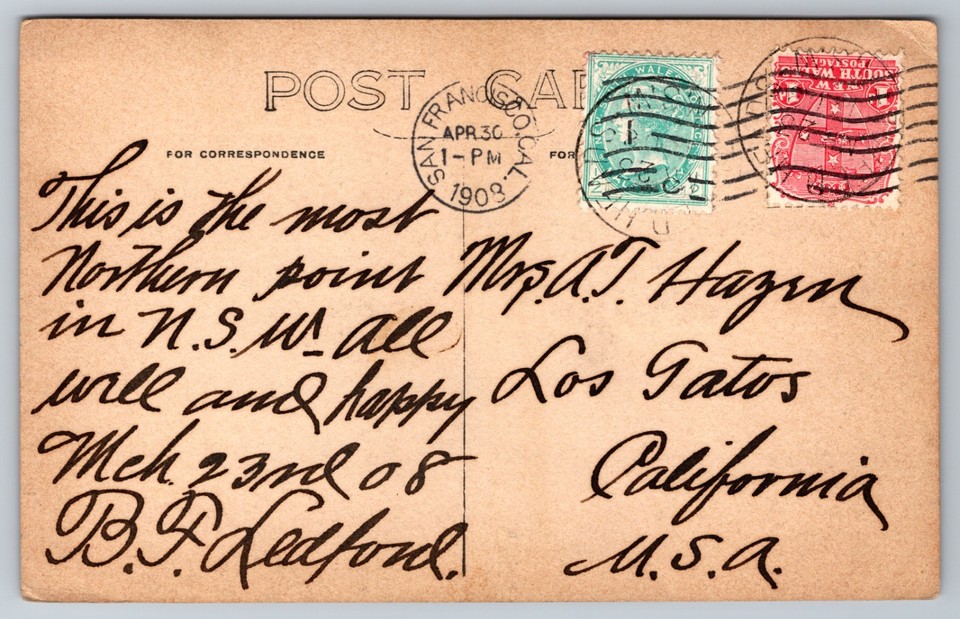 POST CAR
FOR CORRESPONDENCE
FOR
SAN FRANCISCO, CAL.
APR 30
1-PM
1908
WALES
NEW
SOUTH WALES
POSTAGE
This is the most
Northern point
in N.S.W. all
well and happy
Mch. 23rd 08
B.F. Ledford.
Mrs. A.T. Hazen
Los Gatos
California
U.S.A.